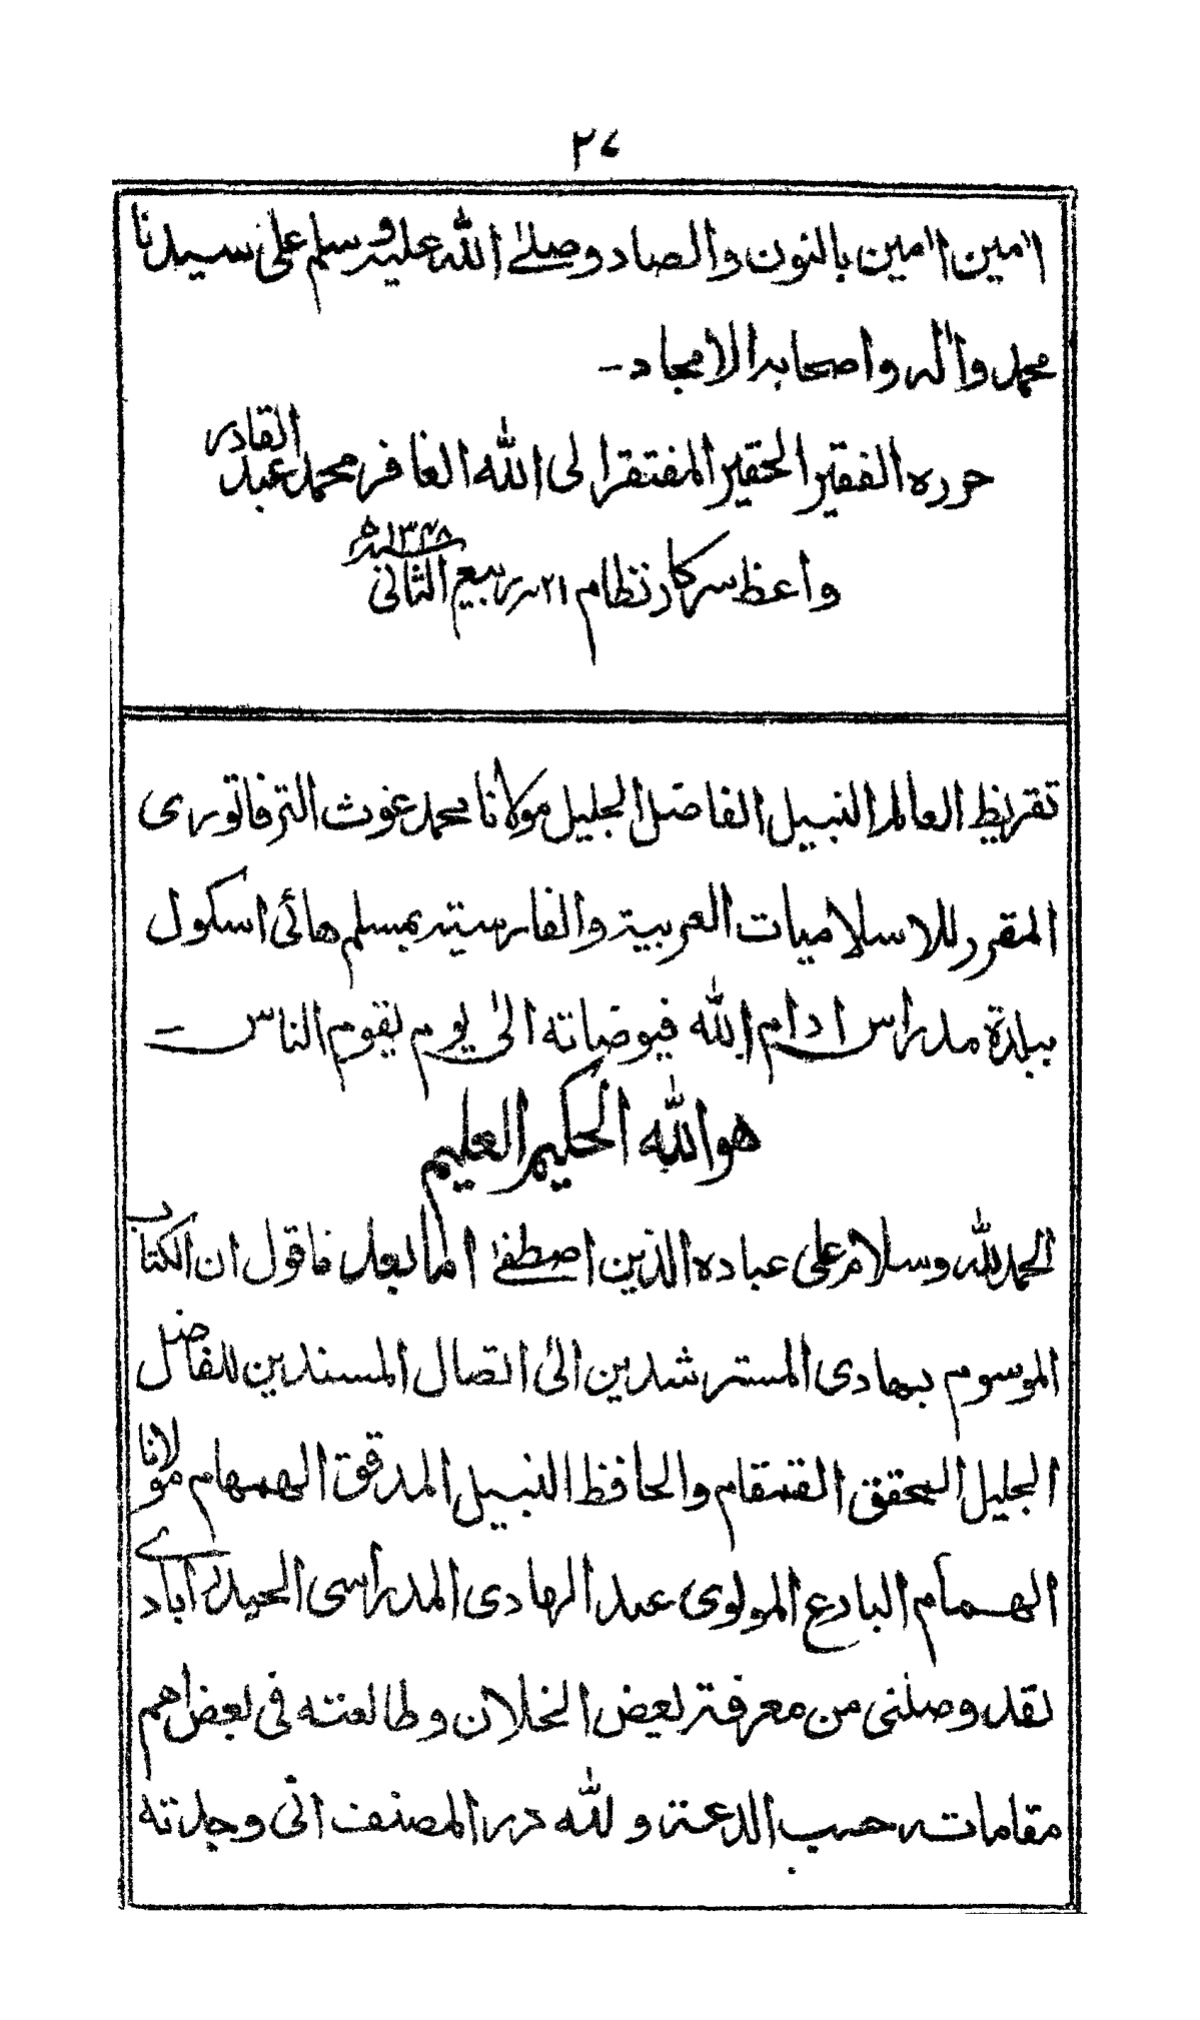 ٢٧
اٰمين اٰمين بالنون والصاد وصلے الله عليه وسلم على سيدنا
محمد واٰله واصحابه الامجاد -
حرره الفقير الحقير المفتقر الى الله الغافر محمد عبد القادر
واعظ سركار نظام ٢١ ربيع الثانى ١٣٤٨ه
تقريظ العالم النبيل الفاضل الجليل مولانا محمد غوث الترفاتورى
المقرر للاسلاميات العربية والفارسية بمسلم هائى اسكول
ببلدة مدراس ادام الله فيوضاته الىٰ يوم يقوم الناس -
هو الله الحكيم العليم
الحمد لله وسلام على عباده الذين اصطفےٰ اما بعد فاقول ان الكتاب
الموسوم بهادى المسترشدين الىٰ اتصال المسندين للفاضل
الجليل المحقق القمقام والحافظ النبيل المدقق الهمهام مولانا
الهمام البارع المولوى عبد الهادى المدراسى الحيدرآبادے
نقد وصلنى من معرفة بعض الخلان وطالعته فى بعض اهم
مقاماته حسب الدعة ولله در المصنف انى وجدته